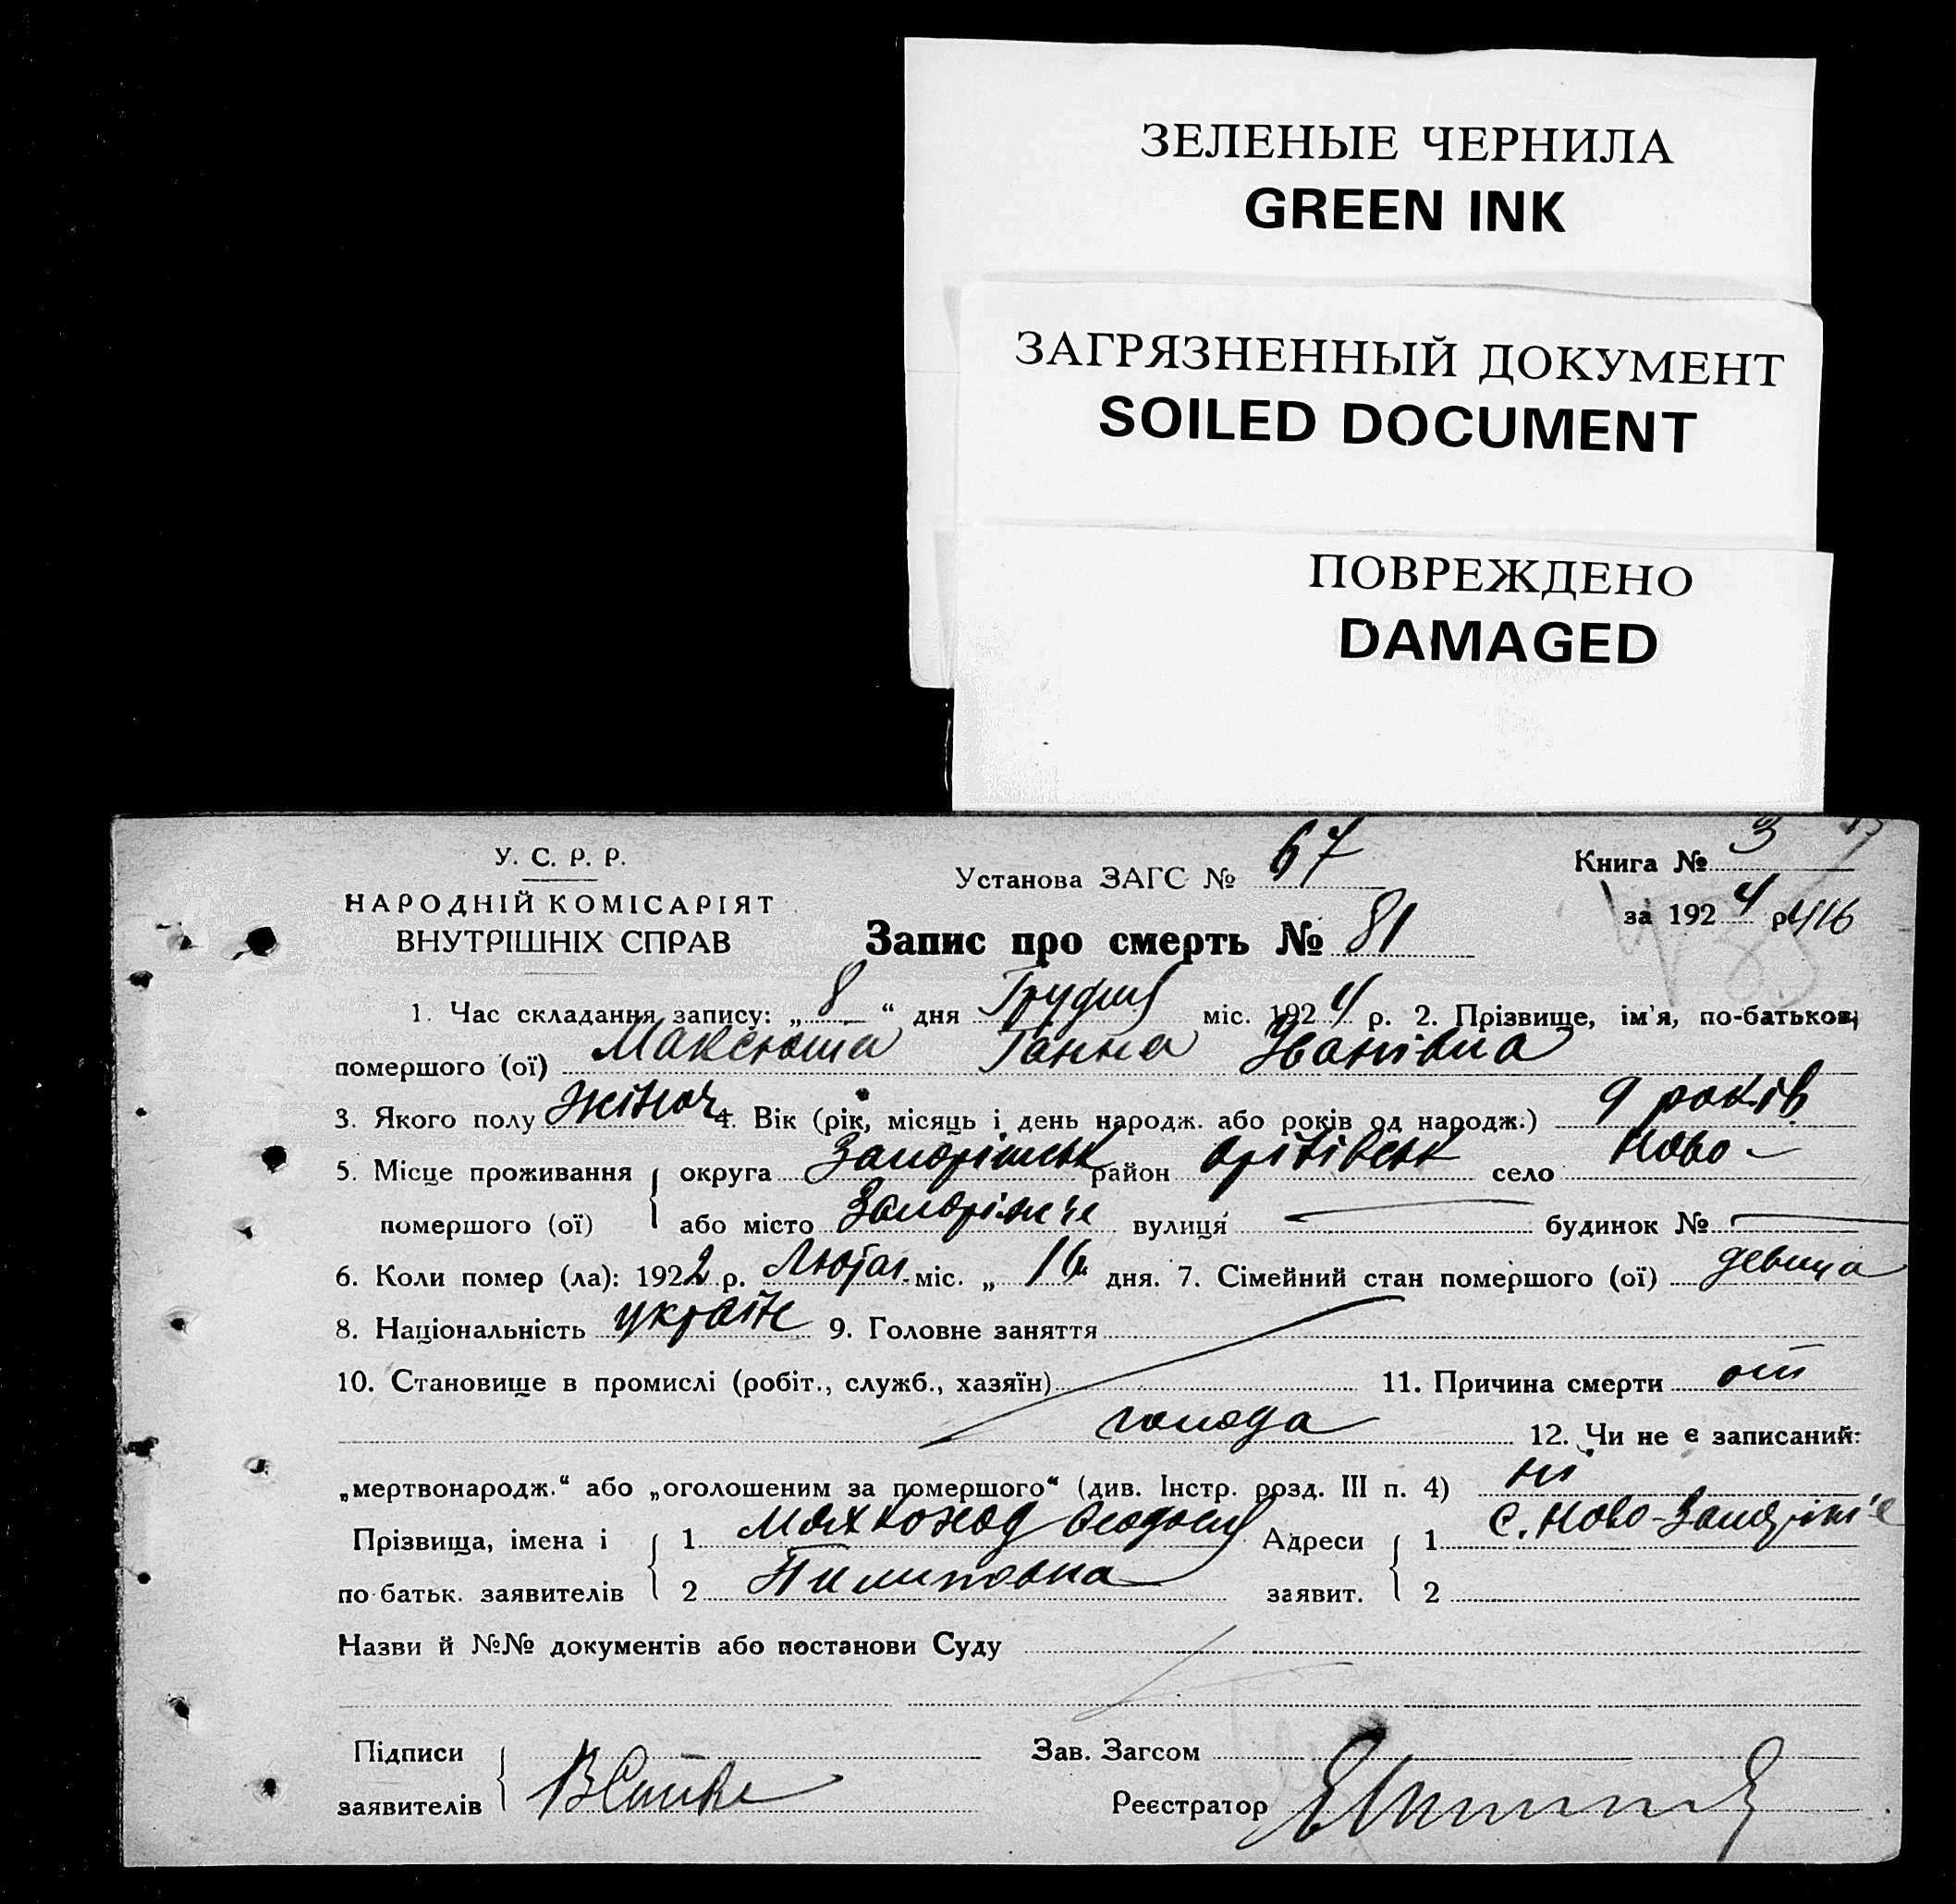 ЗЕЛЕНЫЕ ЧЕРНИЛА
GREEN INK
ЗАГРЯЗНЕННЫЙ ДОКУМЕНТ
SOILED DOCUMENT
ПОВРЕЖДЕНО
DAMAGED
У. С. Р. Р.
НАРОДНІЙ КОМІСАРІЯТ
ВНУТРІШНІХ СПРАВ
Установа ЗАГС № 67
Книга № 3
за 1924 р. 416
Запис про смерть № 81
1. Час складання запису: „8“ дня Грудня міс. 1924 р. 2. Прізвище, ім'я, по-батькові
помершого (ої) Максюта Ганна Іванівна
3. Якого полу жіноч 4. Вік (рік, місяць і день народж. або років од народж.) 9 років
5. Місце проживання округа Запоріжськ район оріхівськ село Ново-
помершого (ої) або місто Запоріжже вулиця — будинок № —
6. Коли помер (ла): 1922 р. Лютог. міс. „ 16 дня. 7. Сімейний стан помершого (ої) девица
8. Національність україн 9. Головне заняття
10. Становище в промислі (робіт., служб., хазяїн) 11. Причина смерти от
голода 12. Чи не є записаний:
„мертвонародж.“ або „оголошеним за помершого“ (див. Інстр. розд. III п. 4) ні
Прізвища, імена і 1 Адреси 1 с. Ново-Запоріж'е
по батьк. заявителів 2 Пилиповна заявит. 2
Назви й №№ документів або постанови Суду
Підписи Зав. Загсом
заявителів Реєстратор